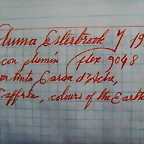 Pluma Esterbrook J 19
con plumin flex 9048
con tinta Caran d'Ache,
Saffron, colours of the Earth